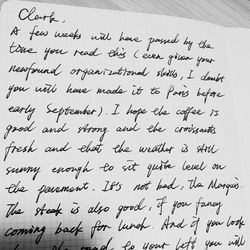 Clark,
A few weeks will have passed by the
time you read this (even given your
newfound organizational skills, I doubt
you will have made it to Paris before
early September). I hope the coffee is
good and strong and the croissants
fresh and that the weather is still
sunny enough to sit quite level on
the pavement. It's not bad, the Marquis.
The steak is also good, if you fancy
coming back for lunch. And if you look
road to your left you will